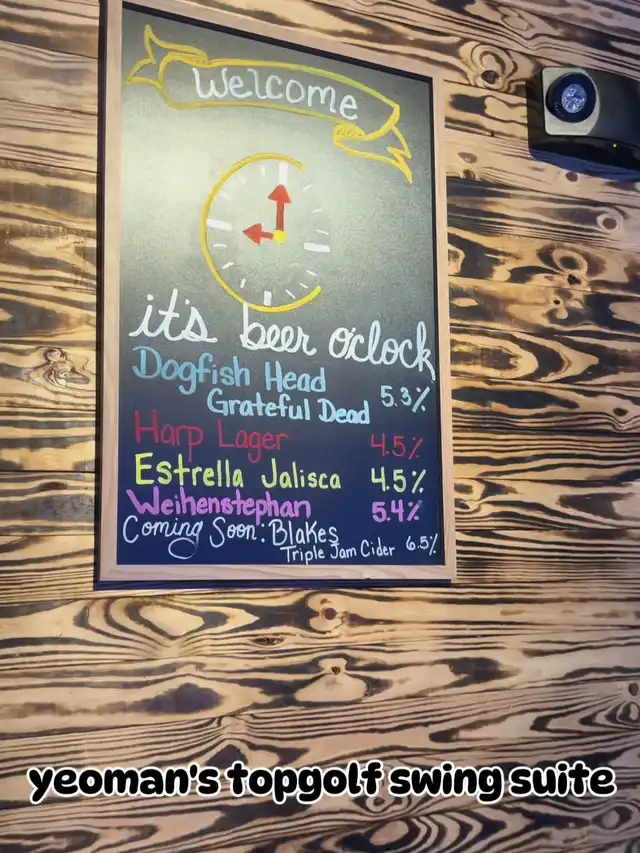 Welcome
it's beer o'clock
Dogfish Head
Grateful Dead 5.3%
Harp Lager 4.5%
Estrella Jalisca 4.5%
Weihenstephan 5.4%
Coming Soon: Blakes
Triple Jam Cider 6.5%
yeoman's topgolf swing suite